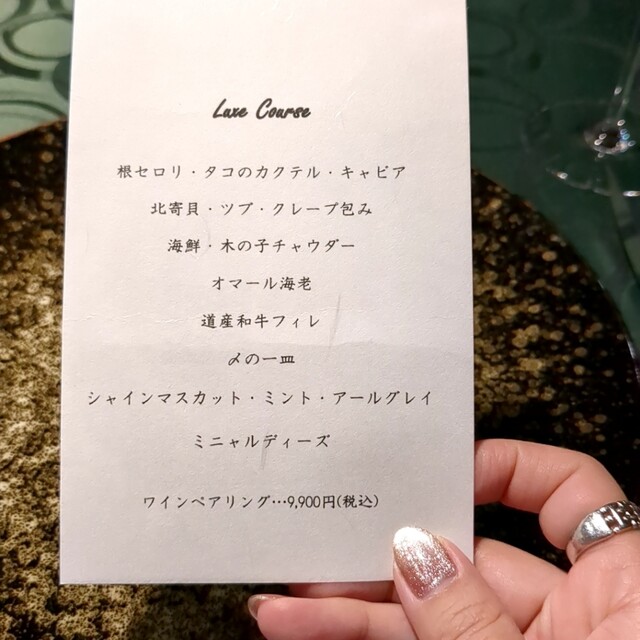 Luxe Course
根セロリ・タコのカクテル・キャビア
北寄貝・ツブ・クレープ包み
海鮮・木の子チャウダー
オマール海老
道産和牛フィレ
〆の一皿
シャインマスカット・ミント・アールグレイ
ミニャルディーズ
ワインペアリング…9,900円(税込)